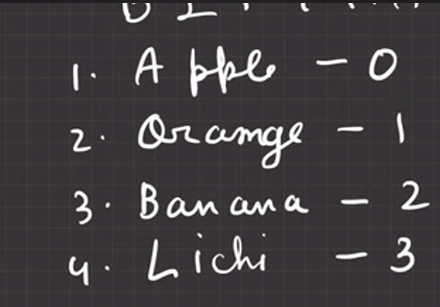 1. Apple - 0
2. Orange - 1
3. Banana - 2
4. Lichi - 3